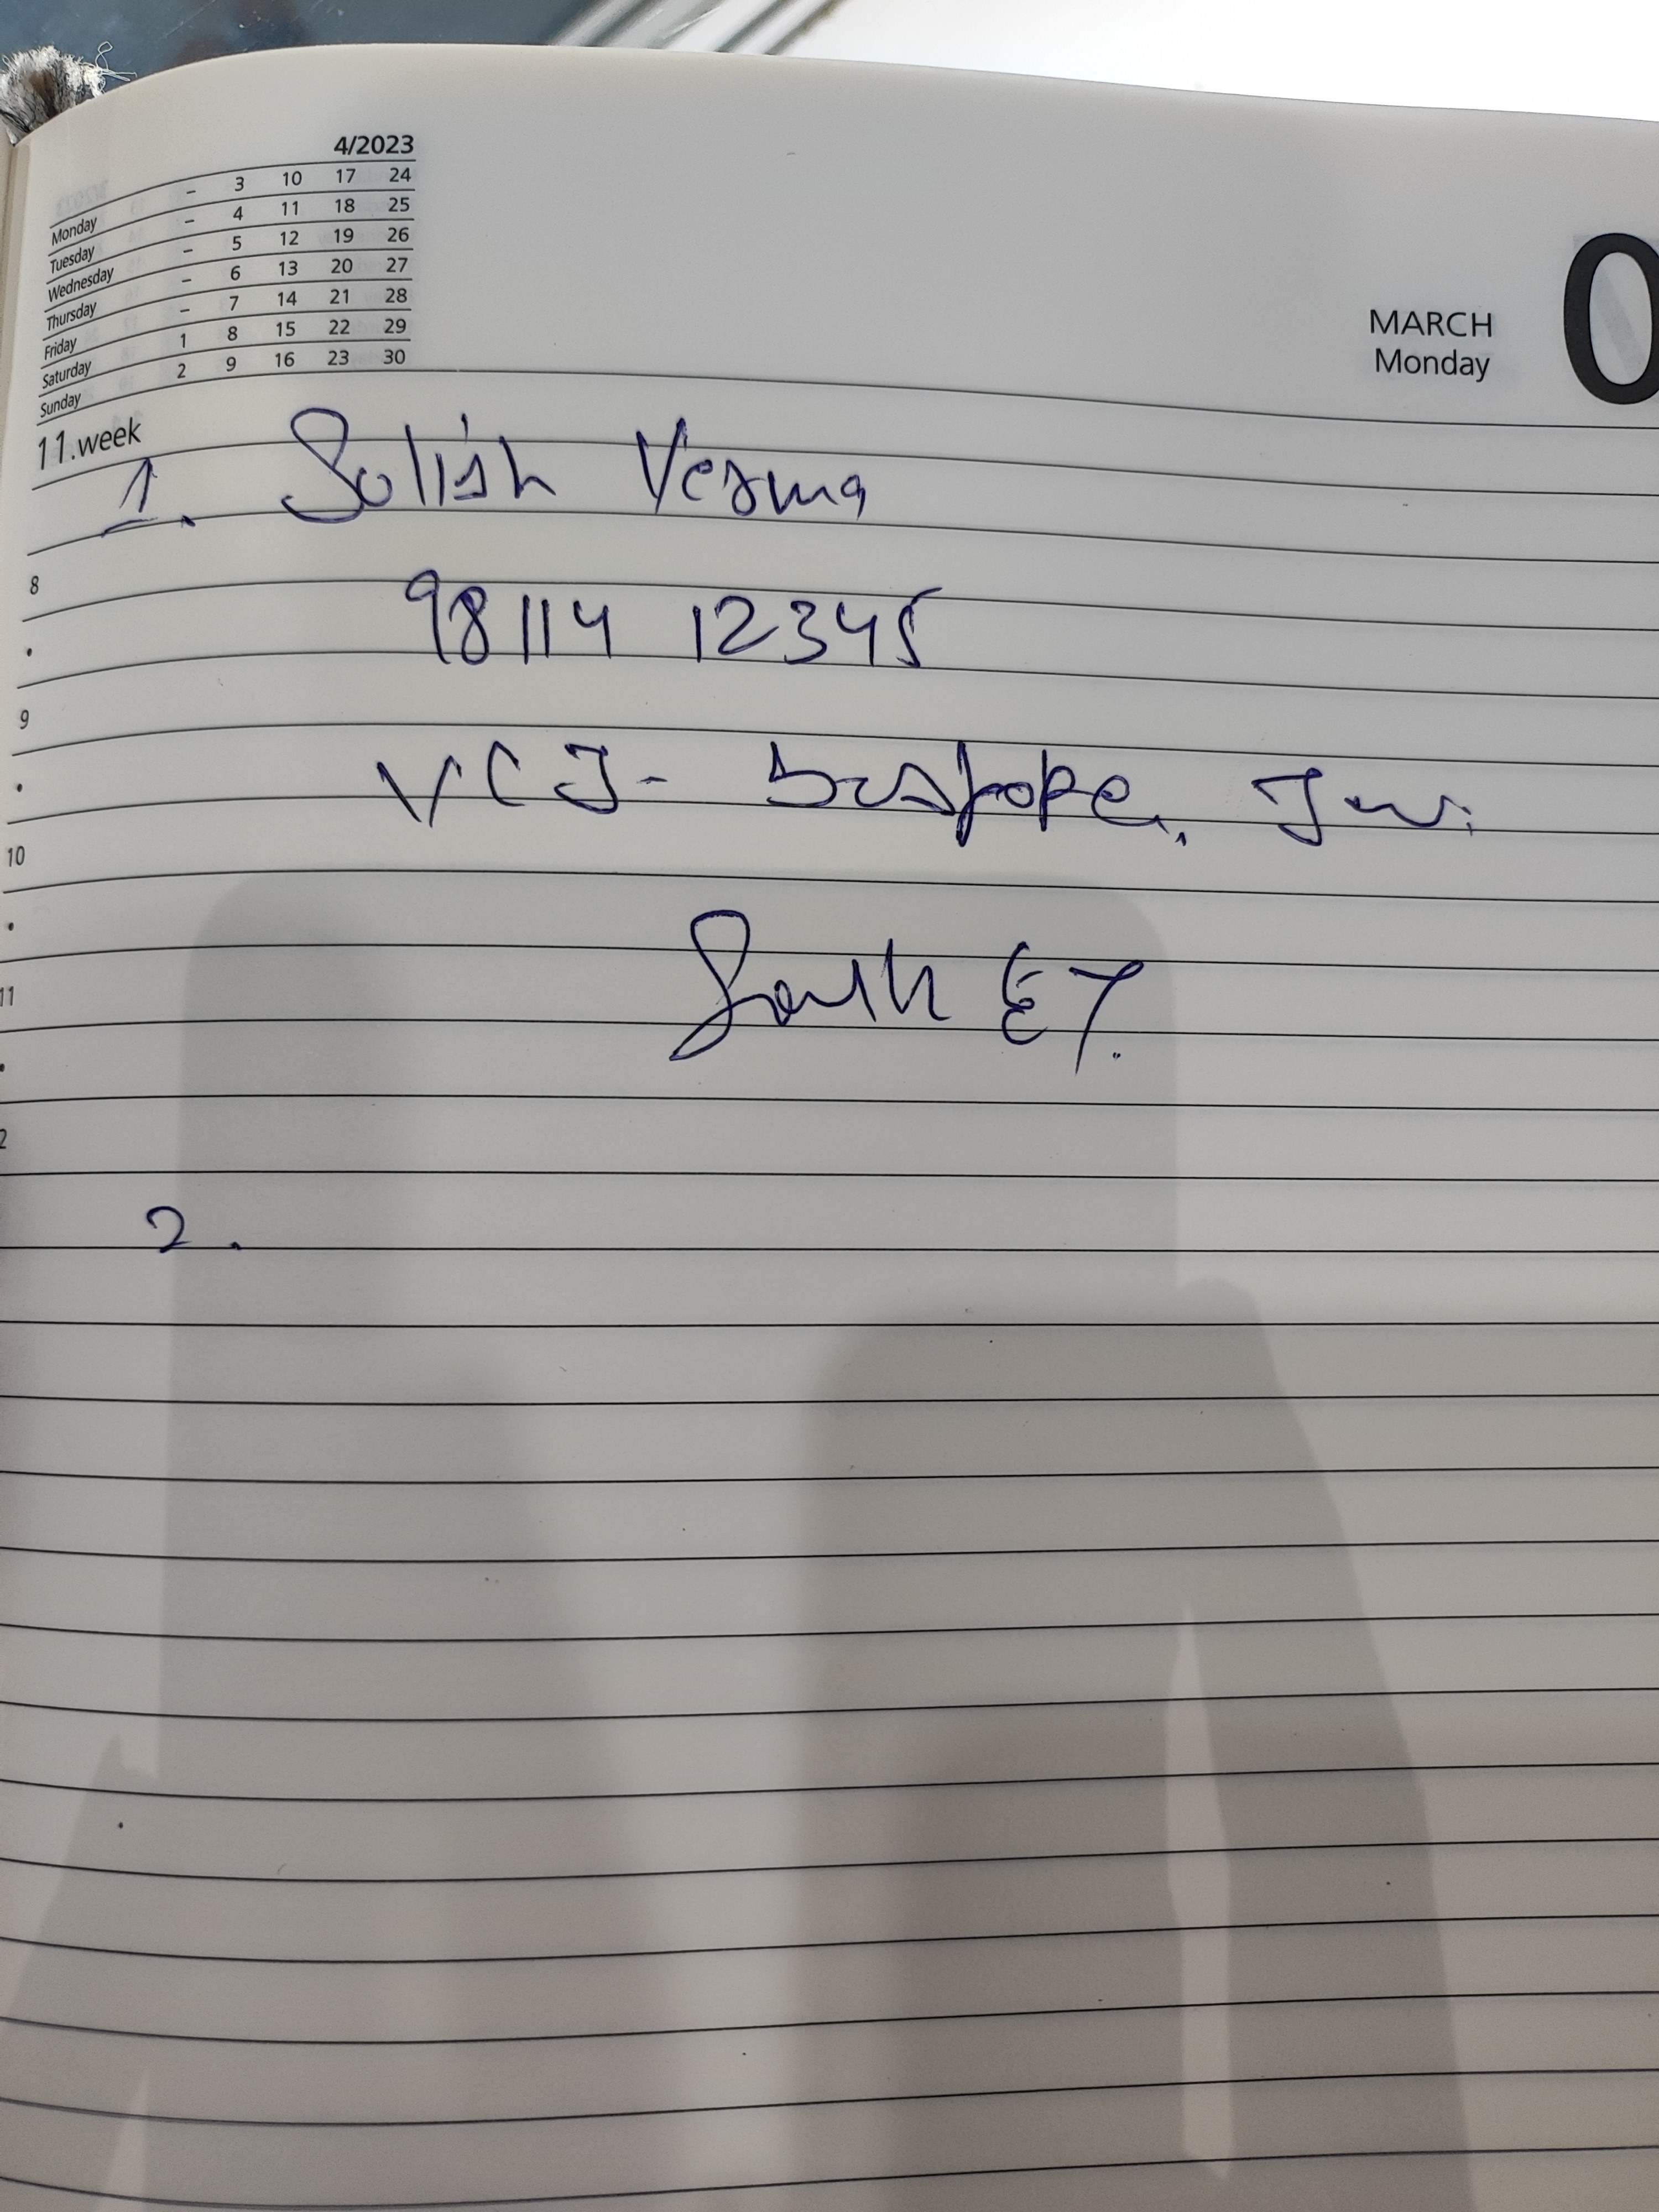 4/2023
Monday – 3 10 17 24
Tuesday – 4 11 18 25
Wednesday – 5 12 19 26
Thursday – 6 13 20 27
Friday – 7 14 21 28
Saturday 1 8 15 22 29
Sunday 2 9 16 23 30
MARCH
Monday
0
11.week
1. Verma
8
98114 12345
9
VCJ- bespoke,
10
South
11
2
2.